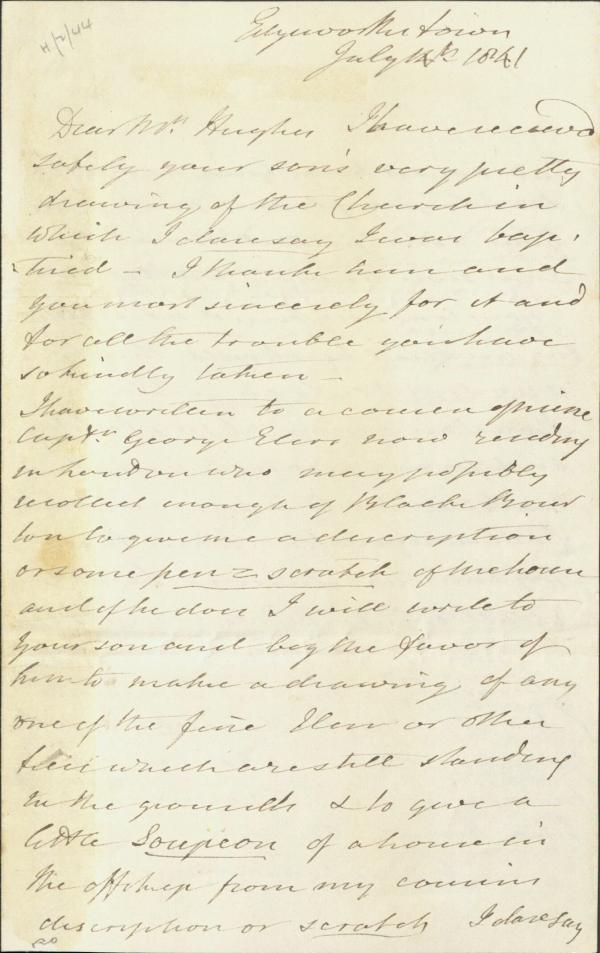 H/2/44
Edgeworthstown
July 14th 1841
Dear Mrs Hughes I have received
safely your son's very pretty
drawing of the Church in
which I daresay I was bap-
tized – I thank him and
you most sincerely for it and
for all the trouble you have
so kindly taken –
I have written to a cousin of mine
Captn George Elers now residing
in London who may possibly
recollect enough of Black Bour
ton to give me a description
or some pen & scratch of the house
and if he does I will write to
your son and beg the favor of
him to make a drawing of any
one of the fine Elms or other
trees which are still standing
in the grounds & to give a
little Soupcon of a house in
the offskip from my cousins
description or scratch I daresay